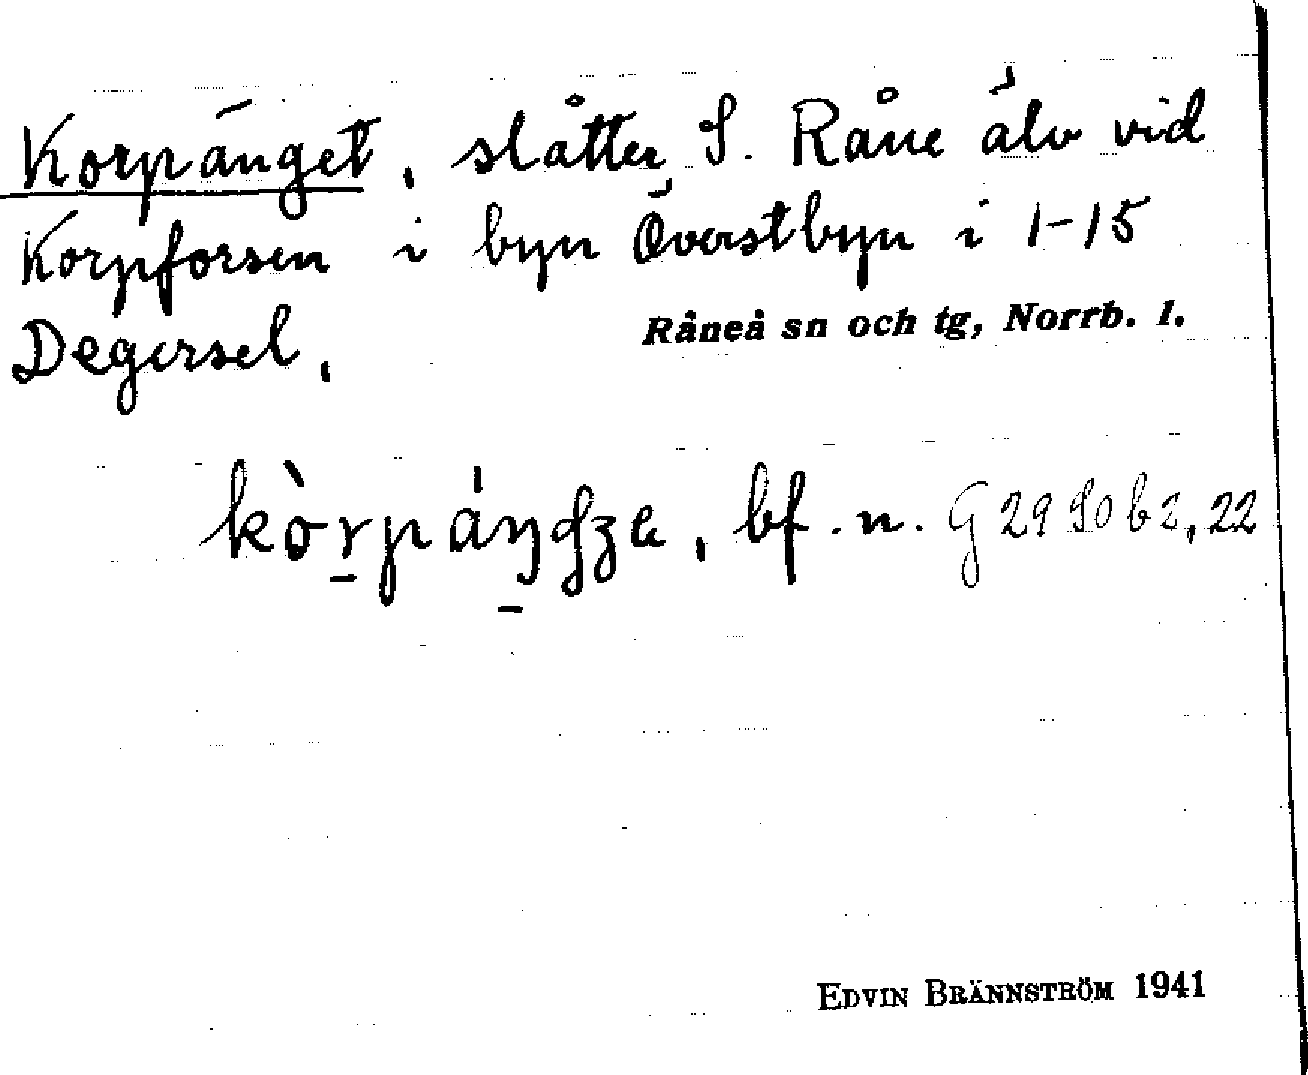 Korpänget, slåtter S. Råne älv vid
Korpforsen i byn Överstbyn i 1-15
Degersel.
Råneå sn och tg, Norrb. l.
bf. n. G 29
EDVIN BRÄNNSTRÖM 1941